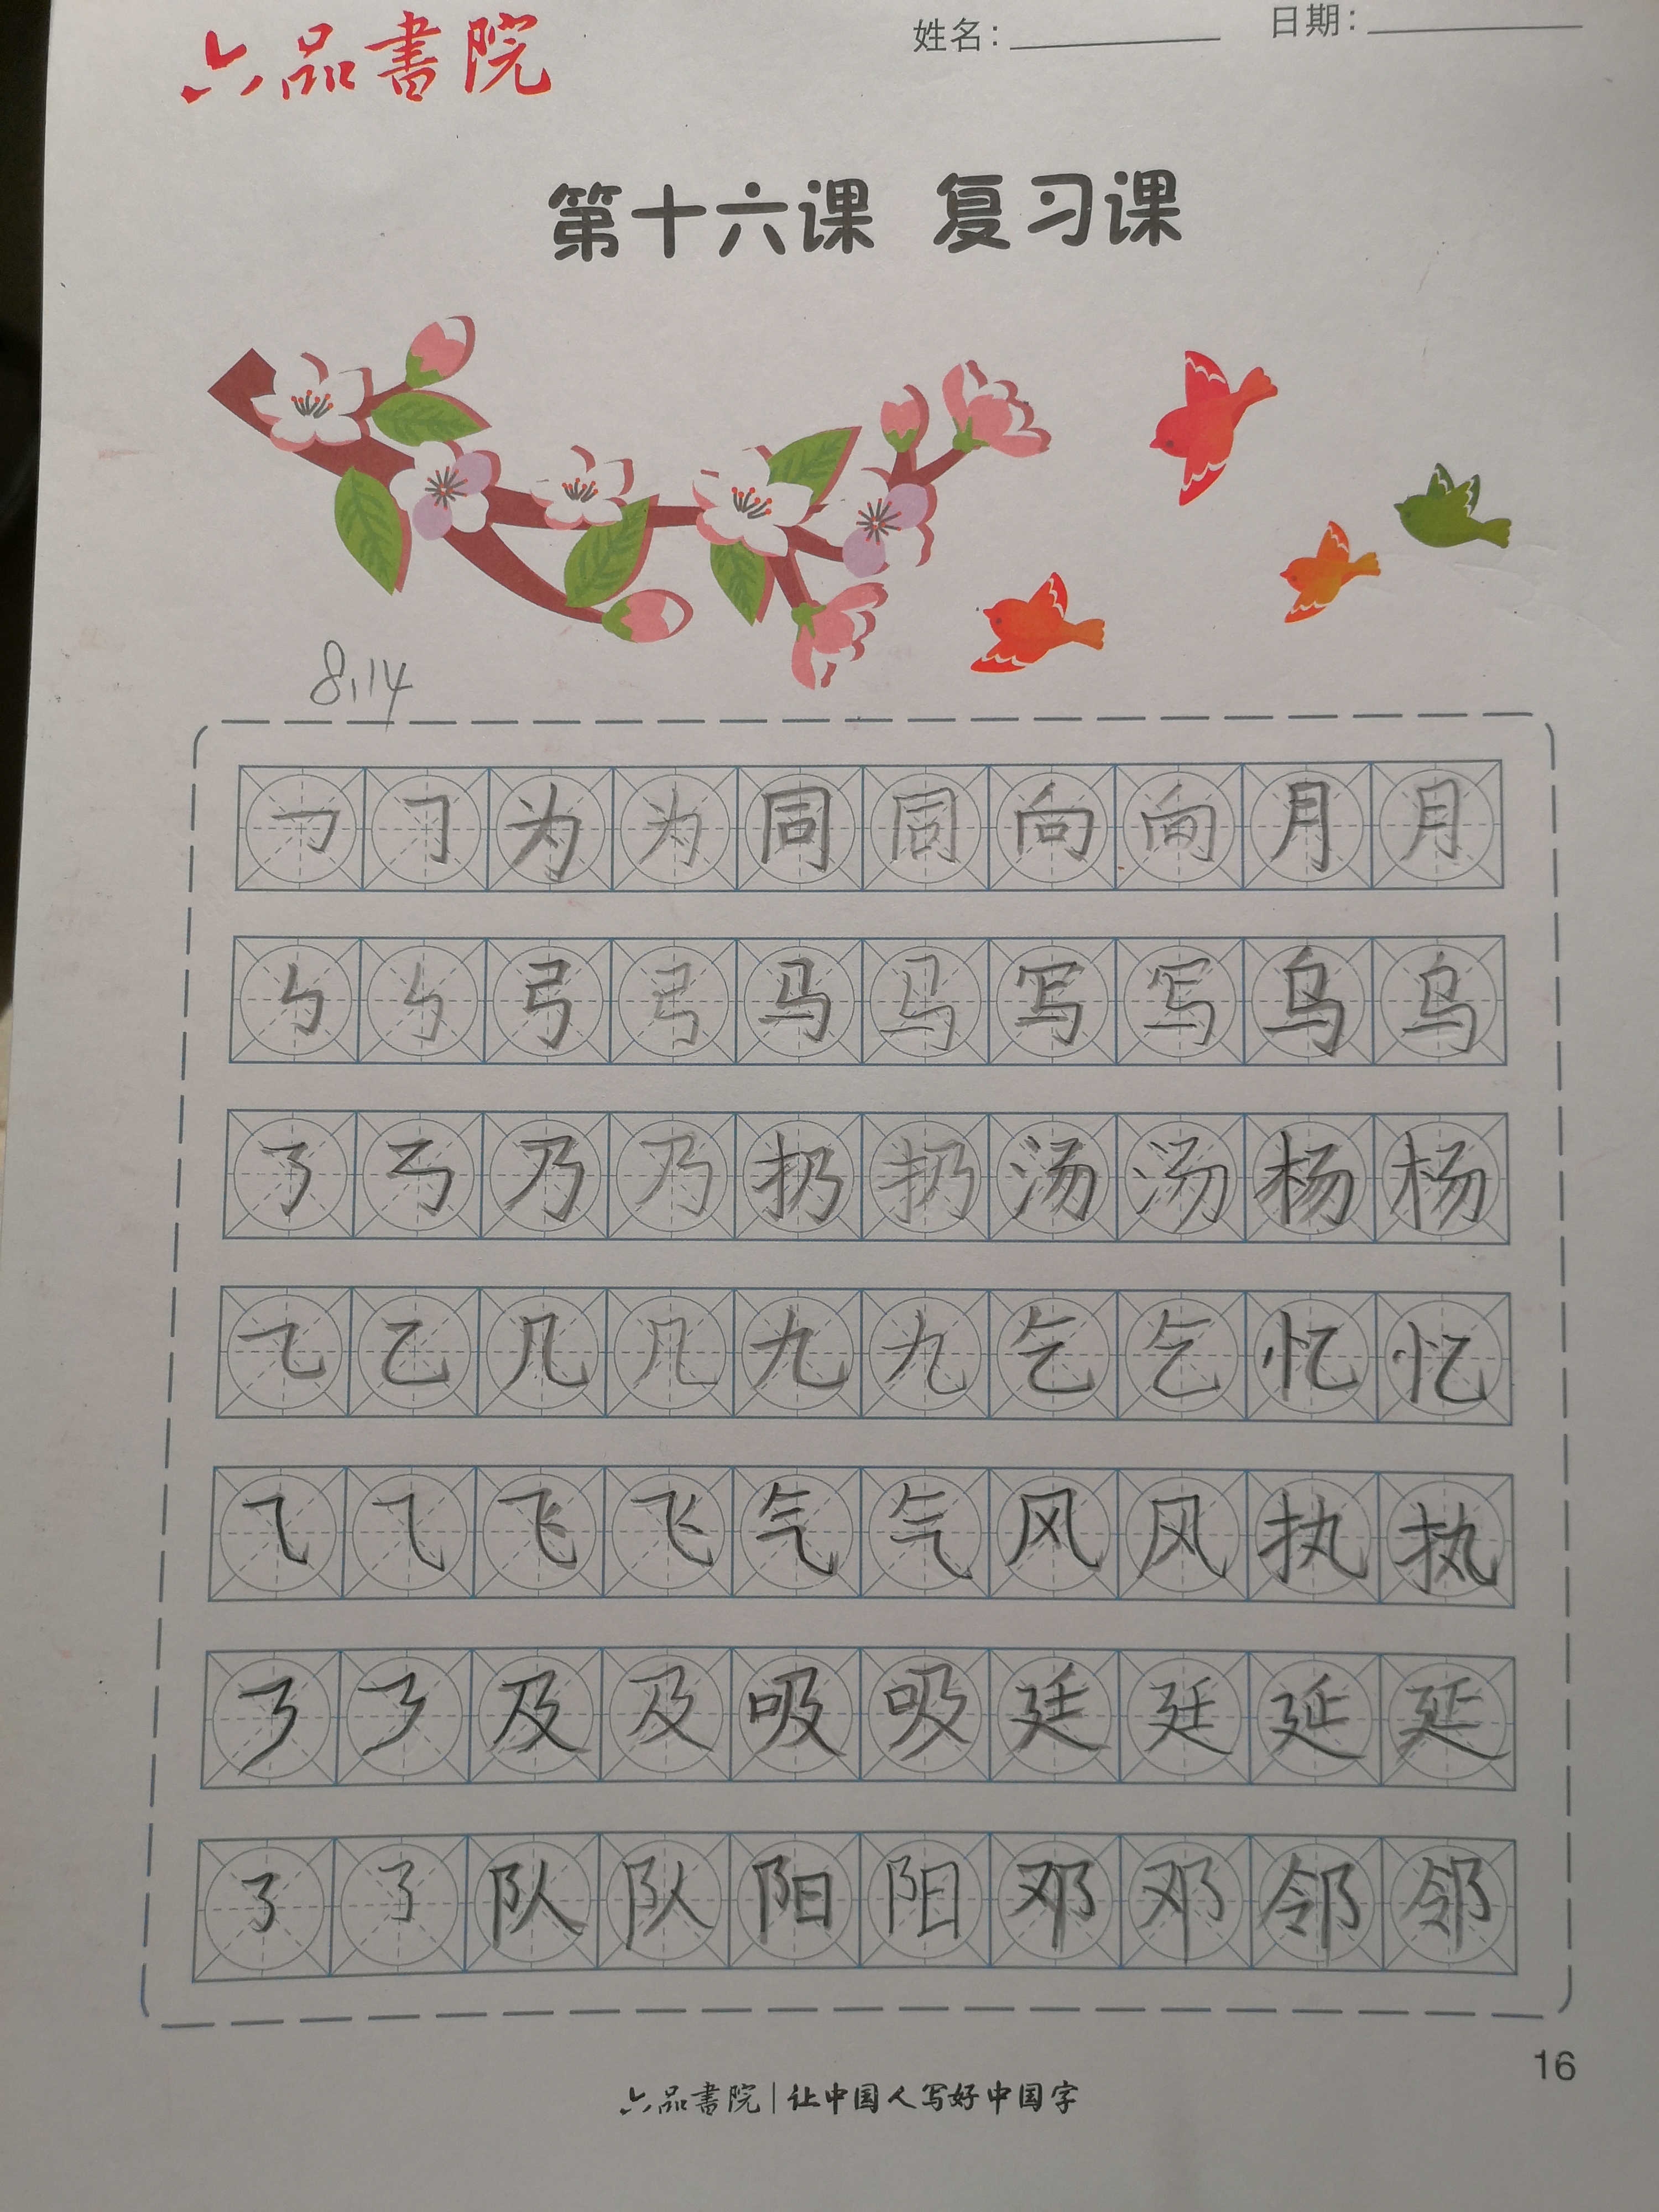 六品書院
姓名：
日期：
第十六课 复习课
8.14
㇆ ㇆ 为 为 同 同 向 向 月 月
㇉ ㇉ 弓 弓 马 马 写 写 乌 乌
㇡ ㇉ 乃 乃 扔 扔 汤 汤 杨 杨
㇈ 乙 几 几 九 九 乞 乞 忆 忆
⺄ ⺄ 飞 飞 气 气 风 风 执 执
㇋ ㇋ 及 及 吸 吸 廷 廷 延 延
㇌ ㇌ 队 队 阳 阳 邓 邓 邻 邻
16
六品書院|让中国人写好中国字